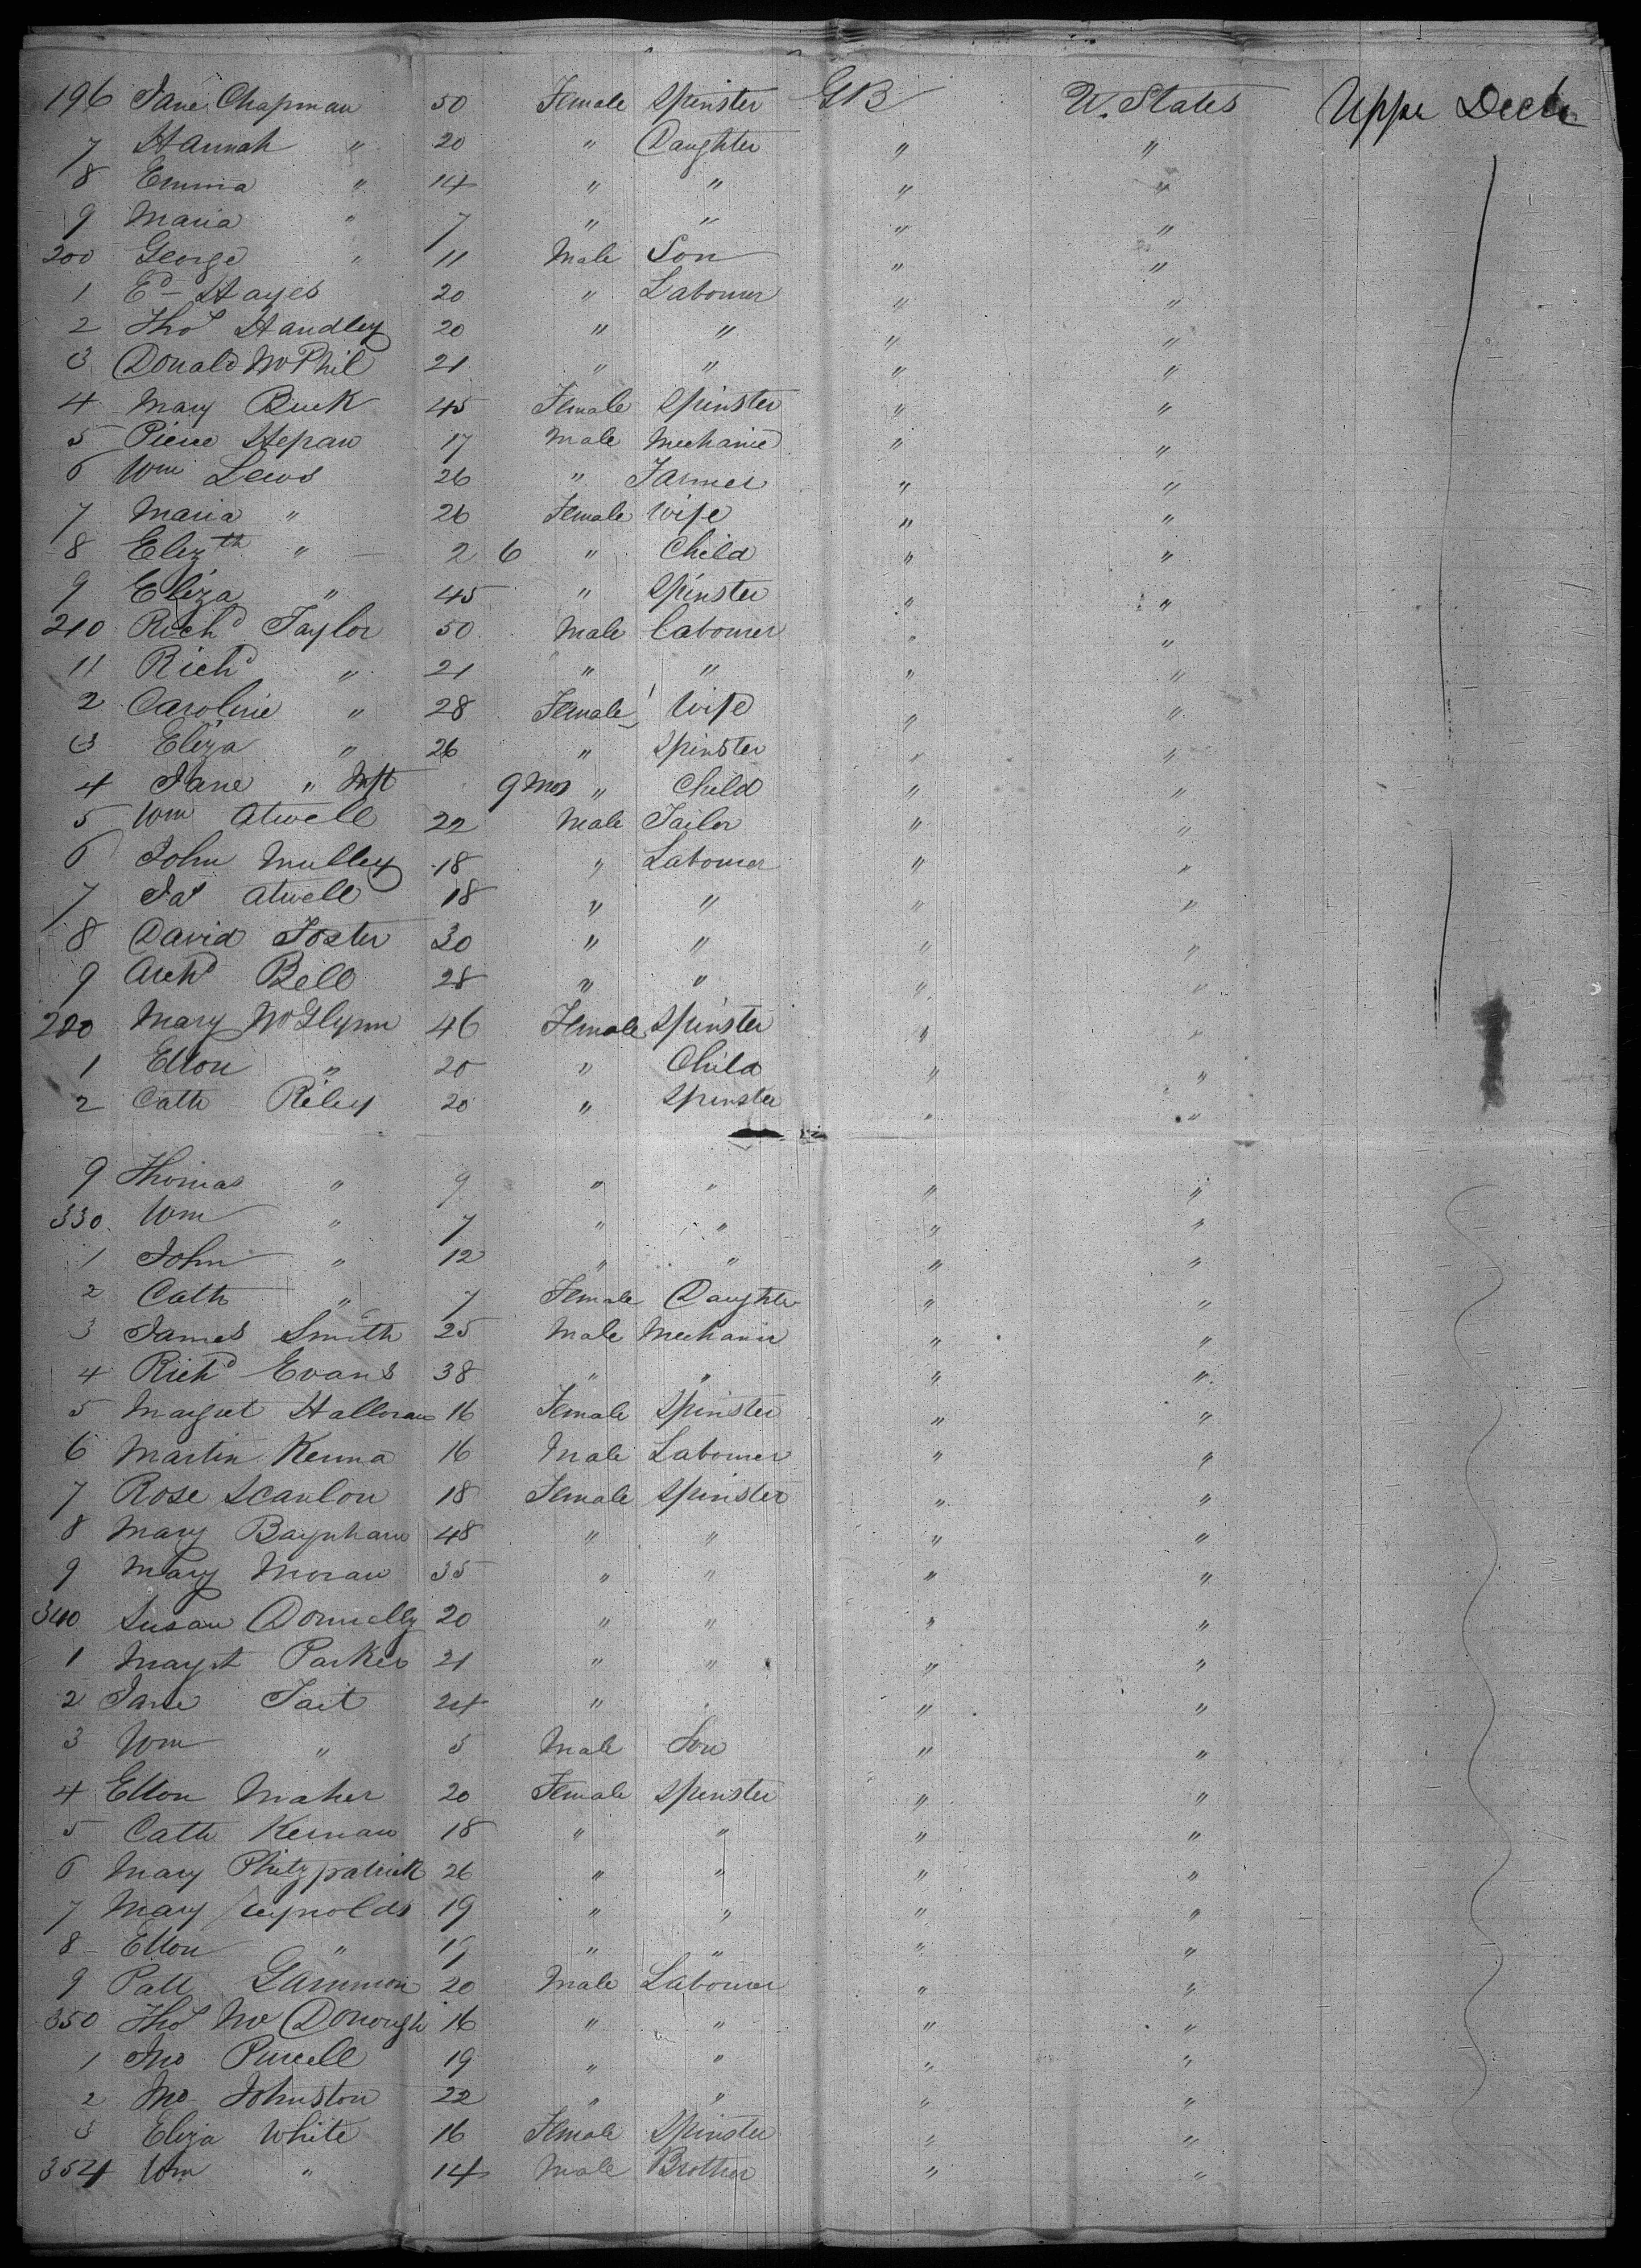 196 Jane Chapman 50 Female Spinster GB U. States Upper Deck
7 Hannah " 20 " Daughter " "
8 Emma " 14 " " " "
9 Maria " 7 " " " "
200 George " 11 Male Son " "
1 Ed Hayes 20 " Labourer " "
2 Thos Handley 20 " " " "
3 Donald McPhil 21 " " " "
4 Mary Buck 45 Female Spinster " "
5 Pierce Hepan 17 Male Mechanic " "
6 Wm Lewis 26 " Farmer " "
7 Maria " 26 Female Wife " "
8 Elizth " 2 6 " Child " "
9 Eliza " 45 " Spinster " "
210 Richd Taylor 50 Male Labourer " "
11 Richd " 21 " " " "
2 Caroline " 28 Female Wife " "
3 Eliza " 26 " Spinster " "
4 Jane " Inft 9 Mos " Child " "
5 Wm Atwell 22 Male Tailor " "
6 John Mulley 18 " Labourer " "
7 Jas Atwell 18 " " " "
8 David Foster 30 " " " "
9 Archd Bell 28 " " " "
220 Mary McGlynn 46 Female Spinster " "
1 Ellen " 20 " Child " "
2 Cath Riley 20 " Spinster " "
9 Thomas " 9 " " " "
330 Wm " 7 " " " "
1 John " 12 " " " "
2 Cath " 7 Female Daughter " "
3 James Smith 25 Male Mechanic " "
4 Richd Evans 38 " " " "
5 Margret Halloran 16 Female Spinster " "
6 Martin Kenna 16 Male Labourer " "
7 Rose Scanlon 18 Female Spinster " "
8 Mary Baynham 48 " " " "
9 Mary Moran 35 " " " "
340 Susan Donnelly 20 " " " "
1 Magrt Parker 21 " " " "
2 Jane Tait 24 " " " "
3 Wm " 5 Male Son " "
4 Ellen Maher 20 Female Spinster " "
5 Cath Kernan 18 " " " "
6 Mary Phitzpatrick 26 " " " "
7 Mary Reynolds 19 " " " "
8 Ellen " 17 " " " "
9 Patt Gammon 20 Male Labourer " "
350 Thos McDonough 16 " " " "
1 Jno Purcell 19 " " " "
2 Jno Johnston 22 " " " "
3 Eliza White 16 Female Spinster " "
354 Wm " 14 Male Brother " "